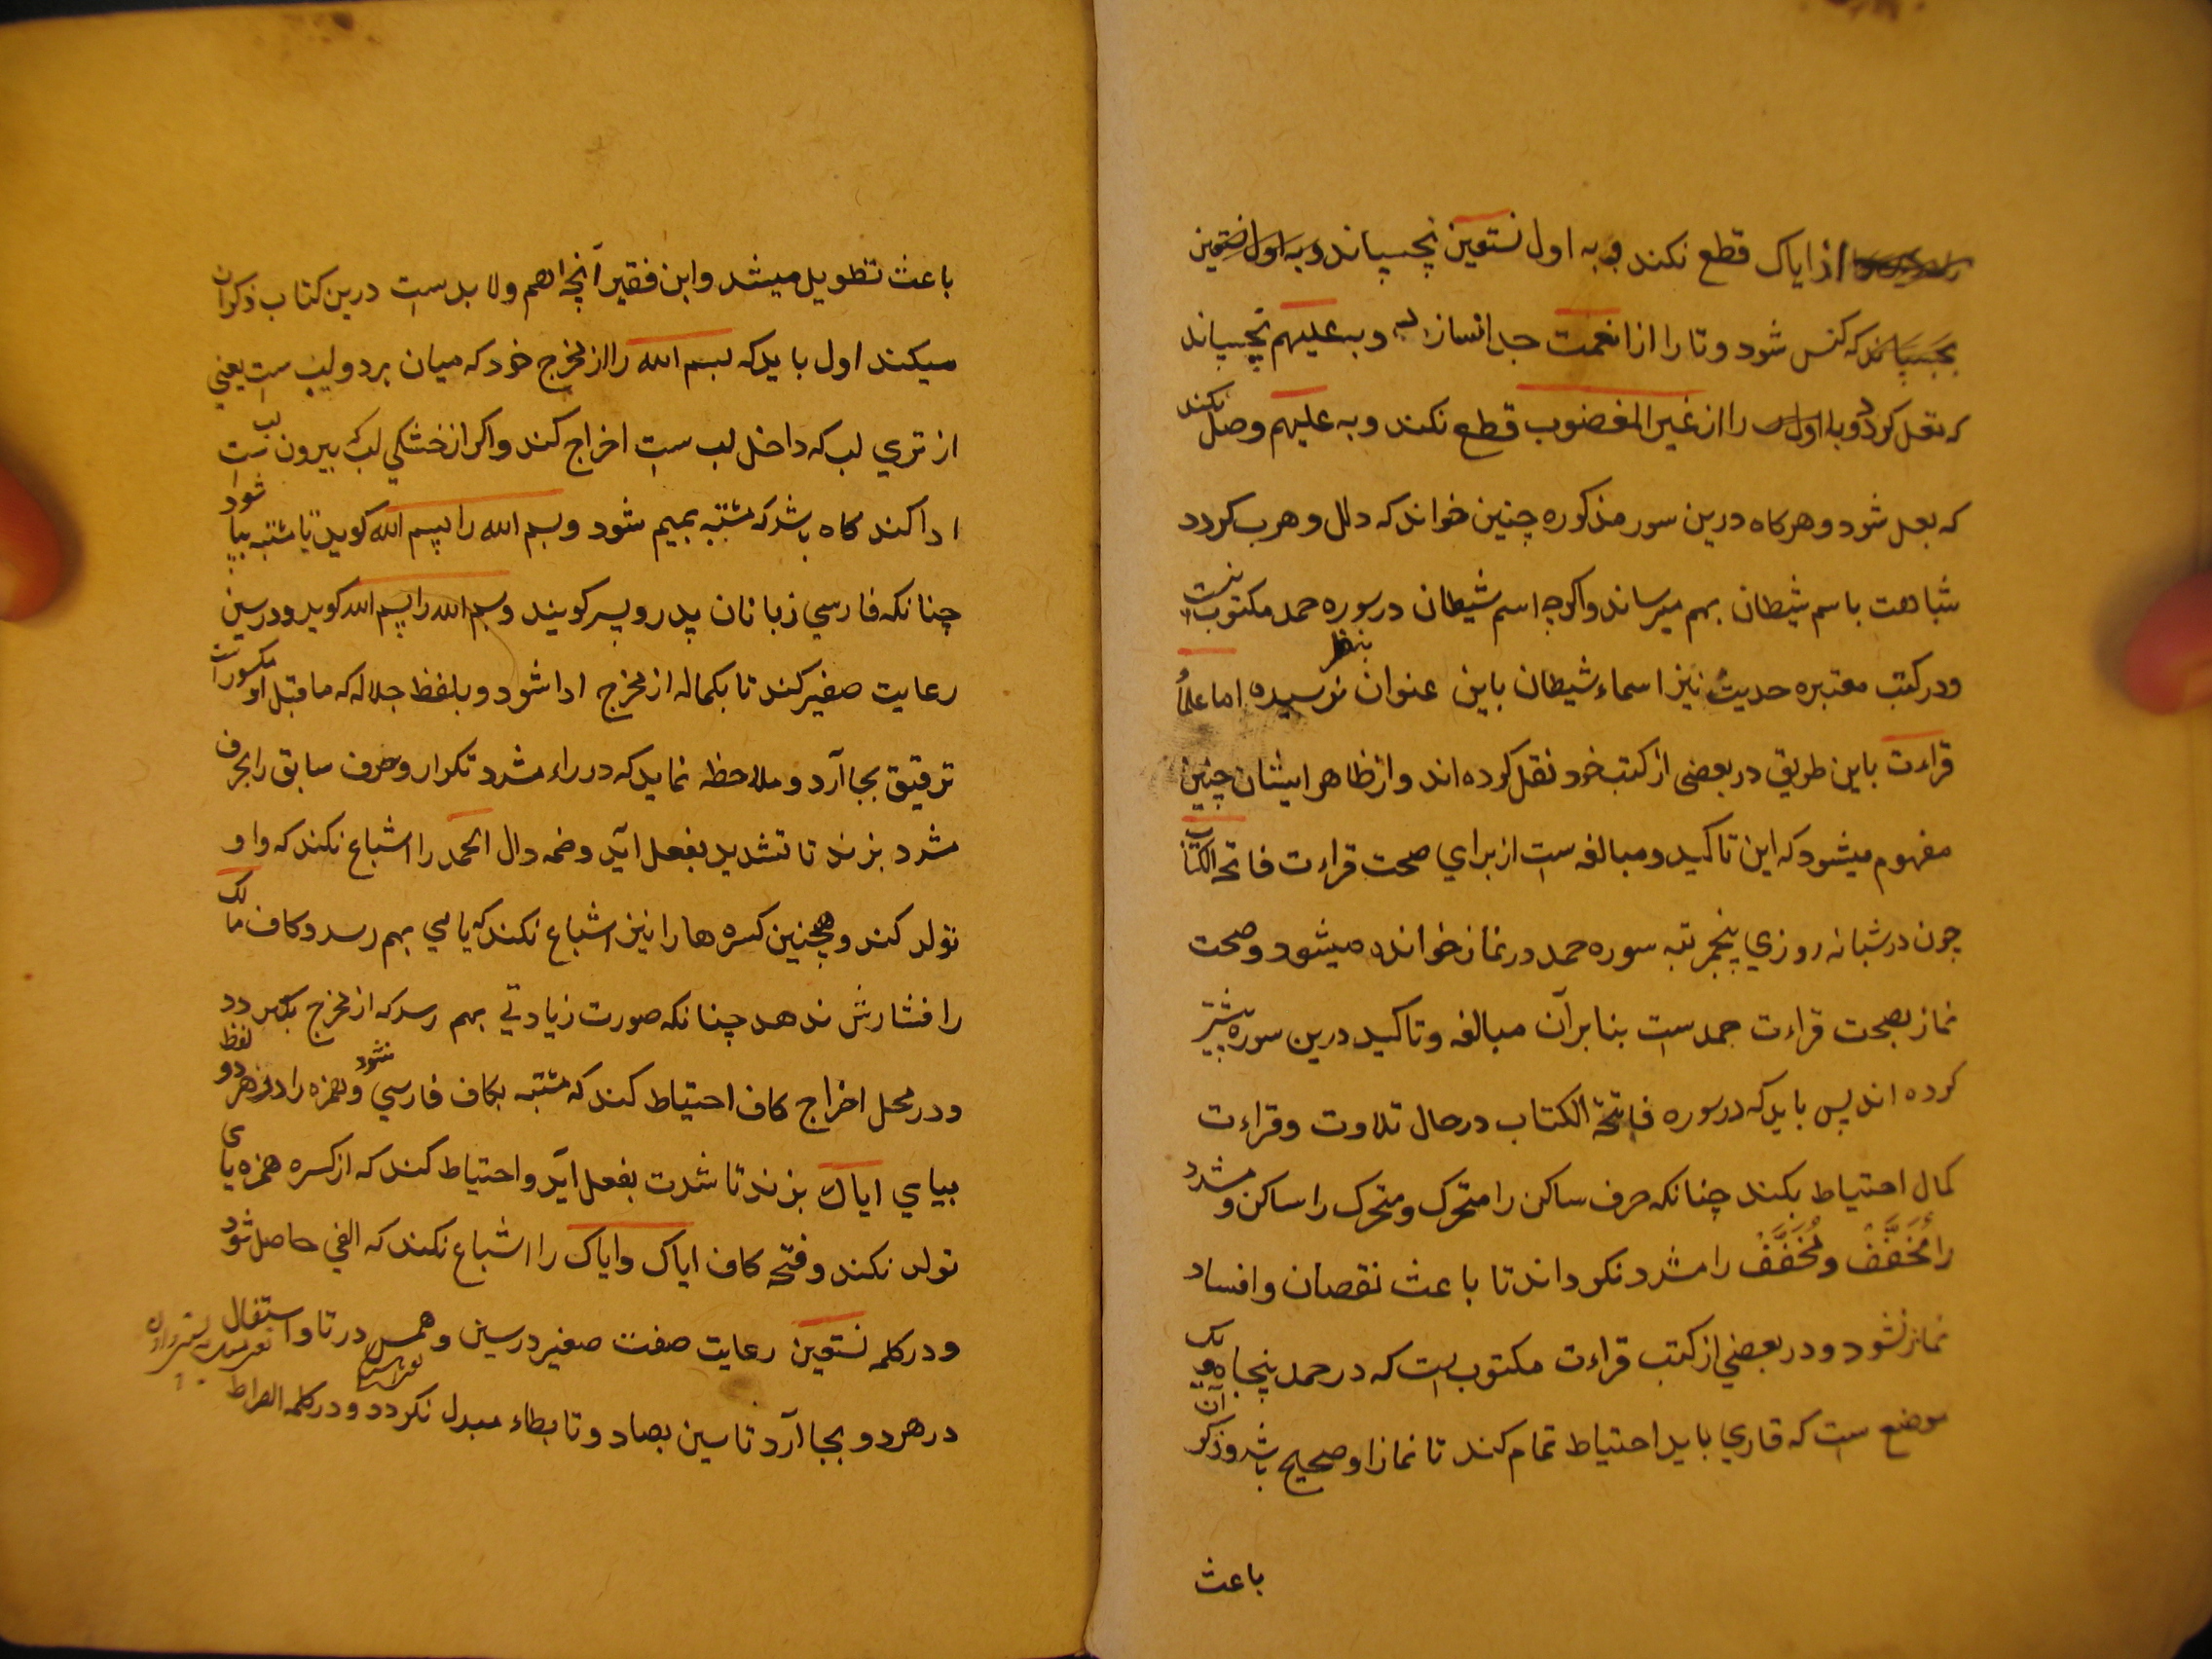 از ایاک قطع نکند و به اول نستعین نچسپاند و به اول نستعین
بچسپاند که کنس شود و تا را از انعمت جدا نسازد و به علیهم نچسپاند
که تعل کردد و با را از غیر المغضوب قطع نکند و به علیهم وصل نکند
که بعل شود و هرکاه درین سور مذکوره چنین خواند که دلل و هرب کردد
شباهت باسم شیطان بهم میرساند واکرچه اسم شیطان در سوره حمد مکتوب نیست
ودر کتب معتبره حدیث نیز اسماء شیطان باین عنوان بنظر نرسیده اما علمأ
قراءت باین طریق در بعضی از کتب خود نقل کرده اند و از ظاهر ایشان چنین
مفهوم میشود که این تاکید و مبالغه ست از برای صحت قراءت فاتحه الکتاب
چون در شبانه روزی پنجمرتبه سوره حمد در نماز خوانده میشود و صحت
نماز بصحت قراءت حمد ست بنا برآن مبالغه و تاکید درین سوره بیشتر
کرده اند پس باید که در سوره فاتحة الکتاب در حال تلاوت و قراءت
کمال احتیاط بکند چنانکه حرف ساکن را متحرک و متحرک را ساکن و مشدد
را مُخَفَّفْ و مُخَفَّفْ را مشدد نکرداند تا باعث نقصان و افساد
نماز نشود و در بعضی از کتب قراءت مکتوب ست که در حمد پنجاه و یک
موضع ست که قاری باید احتیاط تمام کند تا نماز او صحیح باشد و ذکر آن
باعث
باعث تطویل میشد و این فقیر آنچه اهم و لا بد ست درین کتاب ذکر آن
میکند اول باید که بسم الله را از مخرج خود که میان هر دو لب ست یعنی
از تری لب که داخل لب ست اخراج کند واکر از خشکی لب که بیرون لب ست
ادا کند کاه باشد که مشتبه بمیم شود و بسم الله را پسم الله کوید تا مشتبه بپا شود
چنانکه فارسی زبانان پدر و پسر کویند و بسم الله را پسم الله کوید و در سین
رعایت صفیر کند تا بکماله از مخرج ادا شود و بلفظ جلاله که ماقبل او مکسور است
ترقیق بجا آرد و ملاحظه نماید که در راء مشدد تکرار و حرف سابق را بحرف
مشدد بزند تا تشدید بفعل آید و ضمه دال الحمد را اشباع نکند که واو
تولد کند و همچنین کسره ها را نیز اشباع نکند که یایی بهم رسد و کاف مالک
را فشارش ندهد چنانکه صورت زیادتی بهم رسد که از مخرج بکردد
و در محل اخراج کاف احتیاط کند که مشتبه بکاف فارسی نشود و همزه را در هر دو لفظ
بیای ایاک بزند تا شدت بفعل آید و احتیاط کند که از کسره همزه یای
تولد نکند و فتحه کاف ایاک و ایاک را اشباع نکند که الفی حاصل شود
و در کلمه نستعین رعایت صفت صفیر در سین و همس در تا و استفال
در هر دو بجا آرد تا سین بصاد و تا بطاء مبدل نکردد و در کلمه الصراط